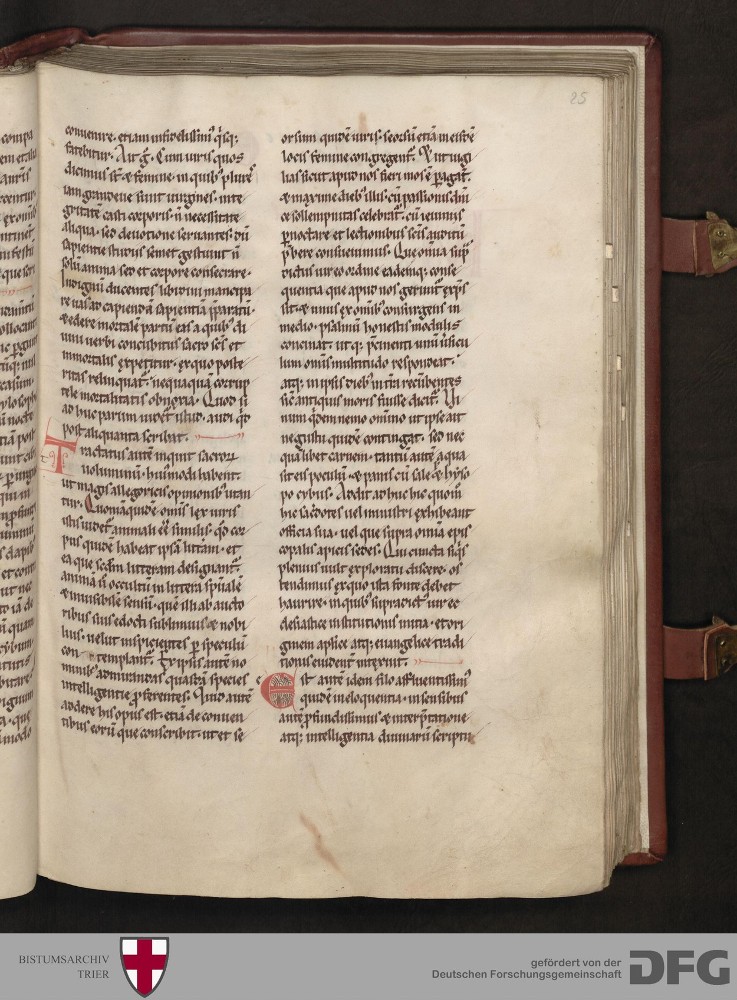 25
conuenire. etiam infidelissimꝰ q̇sq;
fatebitur. Ait g̊. Cum uiris quos
dicimus st̄. & femine. in quibꝰ plures
iam grandeue sunt uirgines. inte
gritatē casti corporis. n̄ necessitate
aliqua. sed deuotione seruantes. dū
sapientie studiis semet gestiunt n̄
solū anima. sed et corpore consecrare.
Indignū ducentes libidini mancipa
re uas ad capiendā sapientiā p̄paratū.
& edere mortalē partū eas a quibꝰ di
uini uerbi concubitus sacrosc̄s et
inmortalis expetitur. ex quo poste
ritas relinquat᷑. nequaquā corrup
tele mortalitatis obnoxia. Quod si
ad huc parum uidet᷑ istud. audi qd̄
post aliquanta scribat.
Tractatus autē inquit sacroꝝ
uoluminū. huiusmodi habent᷑
ut magis allegoricis opinionibꝰ utan
tur. Quoniā quidē omīs lex uiris
istis uidet᷑ animali eē similis. qd̄ cor
pus quidē habeat ipsā litt̄am. et
ea que sc̄dm litteram designant᷑.
animā ū occultū in littera sp̄ualē
& inuisibilē sensū. quē illi ab aucto
ribus suis edocti sublimius & nobi
lius. uelut inspicientes p̲ speculū
contemplant᷑. Ex ipsis autē no
minibꝰ admirandas quasdā species
intelligentie p̲ferentes. Quid autē
addere his opus est. etiā de conuen
tibus eorū que conscribit. ut et se
orsum quidē uiris. seorsū etiā in eisdē
locis femine congregent᷑. & ut uigi
lias sicut apud nos fieri mos ē p̲agat᷑.
& maxime diebꝰ illis. cū passionis dn̄i
ce sollempnitas celebrat᷑. cū ieiuniis
p̲noctare et lectionibus scis auditū
p̄bere consueuimus. Que omīa sup̄
dictus uir eo ordine eadēmq; conse
quentia que apud nos gerunt᷑ exp̄s
sit. & unus ex omībꝰ consurgens in
medio. psalmū honestis modulis
concinat. ut q; p̄cinenti unū uersicu
lum omīs multitudo respondeat.
atq; in ipsis diebꝰ in t̄ra recūbentes
sic antiquis moris fuisse dicit. Vi
num quidem nemo omīno ut ipse ait
ne gustu quidē contingat. sed nec
qua libet carnem. tantū autē aqua
sit eis poculū. & panis cū sale & hyso
po cybus. Addit ad huc his quom̄
hic sac̄dotes uel ministri exhibeant
officia sua. uel que supra omīa epis
copalis apicis sedes. Qui cuncta sīq̇s
plenius uult exploratu discere. os
tendimus ex quo ista fonte debet
haurire. in quibꝰ supradictꝰ uir ec
clesiastice institutionis initia. et ori
ginem ap̄lice atq; euangelice tradi
tionis euident᷑ inseruit.
Est autē idem filo affluentissimꝰ
quidē in eloquentia. in sensibus
autē p̲fundissimus & interp̄tatione
atq; intelligentia diuinarū scriptu
BISTUMSARCHIV
TRIER
gefördert von der
Deutschen Forschungsgemeinschaft
DFG